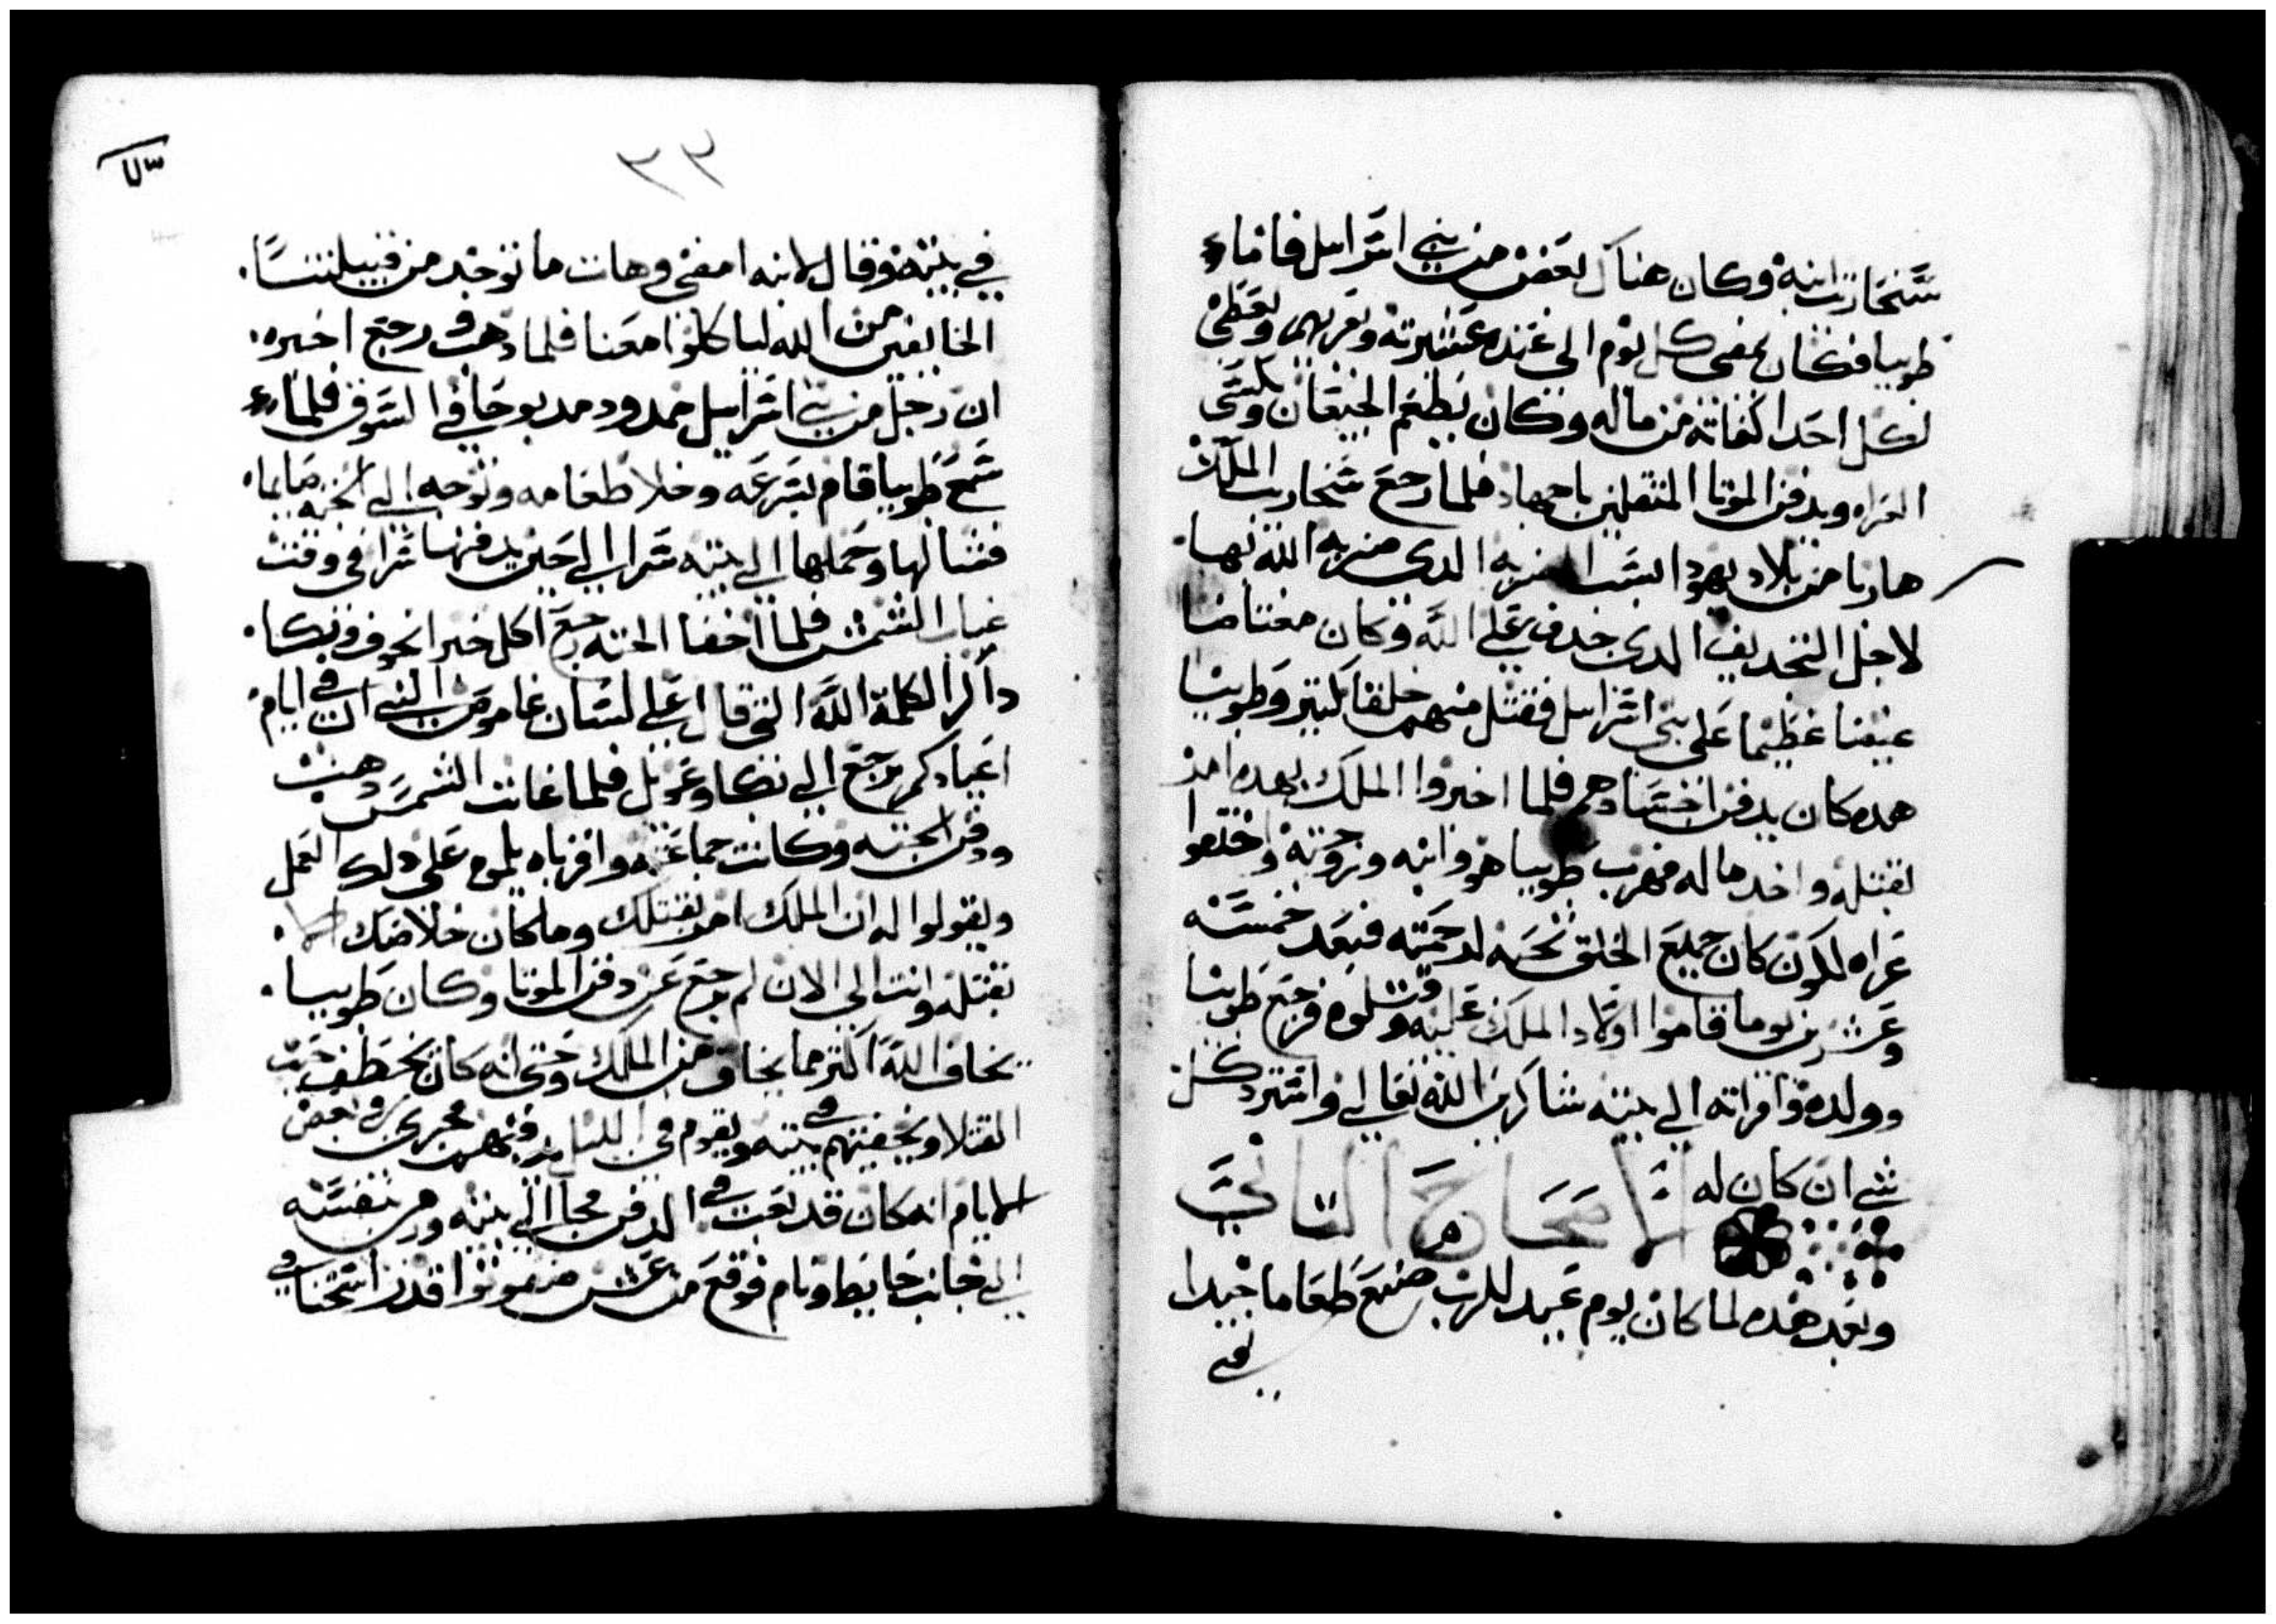 سنحاريب ابنه وكان هناك بعض من بني اسراييل فاماء
طوبيا فكان يمضي كل يوم الي عنده عشيرته ويعزيهم ويعطي
لكل احدا كفاته من ماله وكان يطعم الجيعان ويكسي
العراه ويدفن الموتا المنقلين باجهاد فلما رجع سنحاريب الملك
هاربا من بلاد يهودا بسبب الضربه الدي ضربه الله بها
لاجل التجديف الدي جدف علي الله وكان مغتاضا
عيضا عظيما علي بني اسراييل فقتل منهم خلقا كتير وطوبيا
هده كان يدفن اجسادهم فلما اخبروا الملك بهده امر
بقتله واخد ماله فهرب طوبيا هو وابنه وزوجته واختفوا
عراه لكون كان جميع الخلق تحبه لرحمته فبعد خمسه
وعشرين يوما قاموا اولاد الملك عليه وقتلوه فرجع طوبيا
وولده وامراته الي بيته شاكرين الله تعالي واسترد كل
شي ان كان له الاصحاح التاني
وبعد هده لما كان يوم عيد للرب صنع طعاما جيدا
في
٣٣
في بيته وقال لابنه امضي وهات ما توجد من قبيلتنا
الخايفين من الله لياكلوا معنا فلما دهب ورجع اخبره
ان رجل من بني اسراييل ممدود مدبوحا في السوق فلما
سمع طوبيا قام بسرعه وخلا طعامه وتوجه الي الجته صايما
فتنالها وحملها الي بيته سرا الي حين يدفنها سرا في وقت
غياب الشمس فلما اخفا الجته رجع اكل خبز الخوف وبكا
داكرا لكلمة الله التي قال علي لسان عاموص النبي ان في ايام
اعيادكم يرجع الي نكا وعويل فلما غابت الشمس دهب
ودفن الجته وكانت جماعته واقرباه يلموه علي دلك العمل
ويقولوا له ان الملك امر بقتلك وما كان خلاصك الا
بقتله وانت الي الان لم ترجع عن دفن الموتا وكان طوبيا
يخاف الله اكتر مما يخاف من الملك وحتي انه كان يخطف جتت
القتلا ويخفيهم في بيته ويقوم في الليل يدفنهم فجري في بعض
الايام انه كان قد تعب في الدفن فجا الي بيته ورمي بنفسه
الي جانب حايط ونام فوقع من عش عصفوتوا قدر اسخنا في